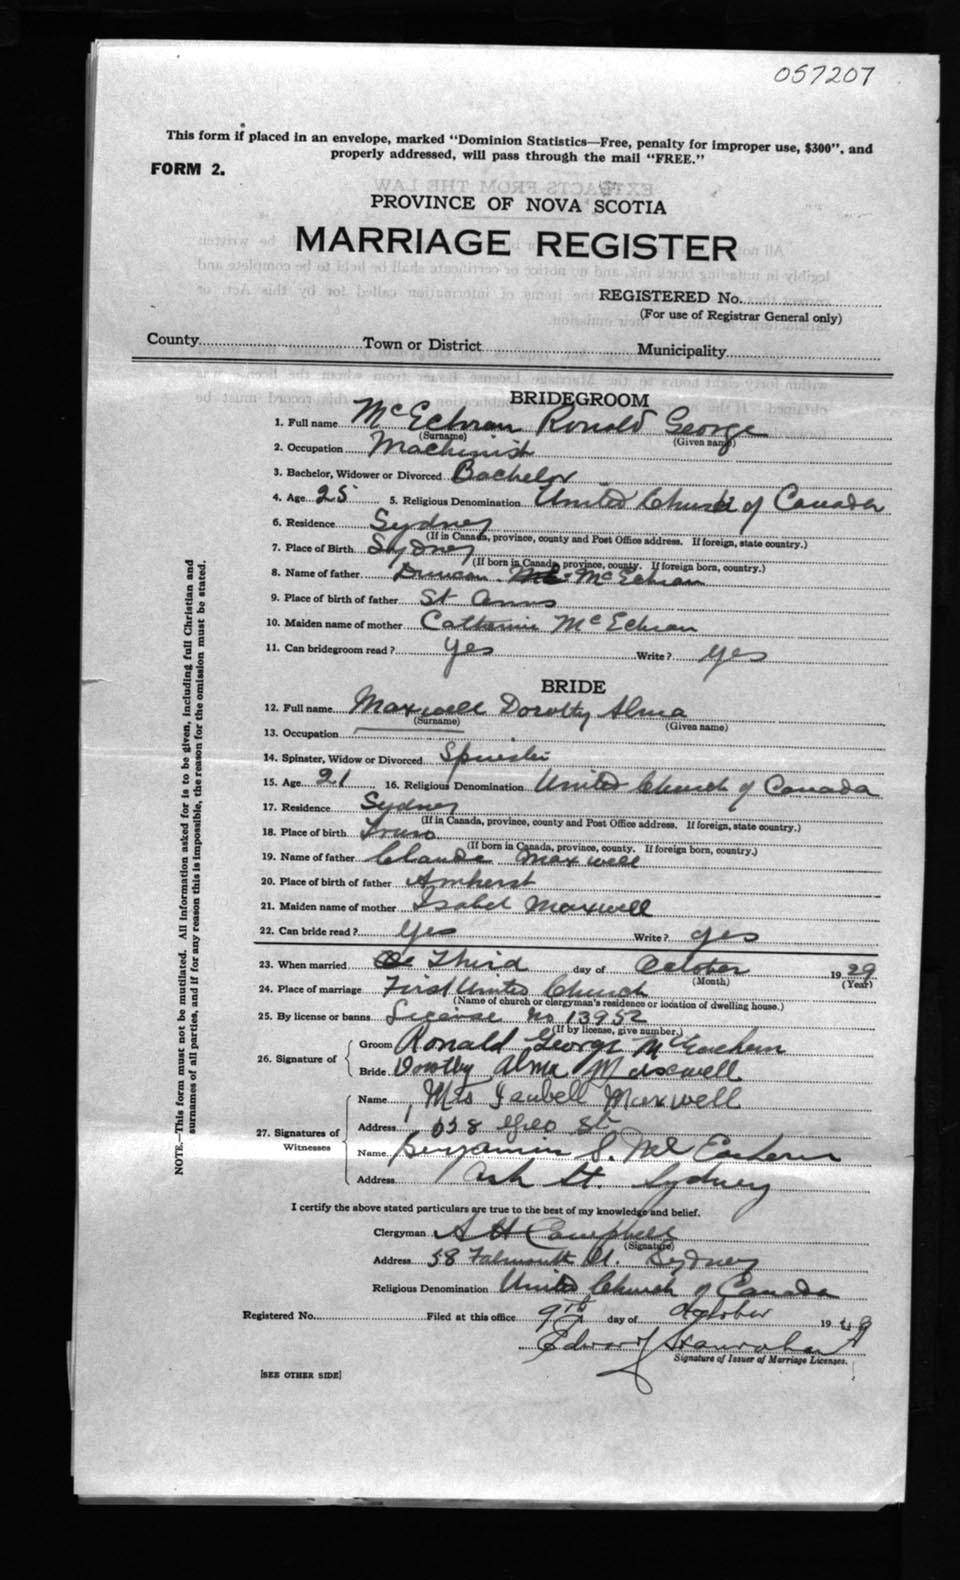 057207
This form if placed in an envelope, marked "Dominion Statistics—Free, penalty for improper use, $300", and
properly addressed, will pass through the mail "FREE."
FORM 2.
EXTRACTS FROM THE LAW
PROVINCE OF NOVA SCOTIA
MARRIAGE REGISTER
REGISTERED No.
(For use of Registrar General only)
County Town or District Municipality
BRIDEGROOM
1. Full name McEchran Ronald George
(Surname) (Given name)
2. Occupation Machinist
3. Bachelor, Widower or Divorced Bachelor
4. Age 25 5. Religious Denomination United Church of Canada
6. Residence Sydney
(If in Canada, province, county and Post Office address. If foreign, state country.)
7. Place of Birth Sydney
(If born in Canada, province, county. If foreign born, country.)
8. Name of father Duncan McEchran
9. Place of birth of father St Anns
10. Maiden name of mother Catherine McEchran
11. Can bridegroom read? Yes Write? yes
BRIDE
12. Full name Maxwell Dorothy Alma
(Surname) (Given name)
13. Occupation
14. Spinster, Widow or Divorced Spinster
15. Age 21 16. Religious Denomination United Church of Canada
17. Residence Sydney
(If in Canada, province, county and Post Office address. If foreign, state country.)
18. Place of birth Truro
(If born in Canada, province, county. If foreign born, country.)
19. Name of father Claude Maxwell
20. Place of birth of father Amherst
21. Maiden name of mother Isabel Maxwell
22. Can bride read? Yes Write? yes
23. When married Third day of October 1929
(Month) (Year)
24. Place of marriage First United Church
(Name of church or clergyman's residence or location of dwelling house.)
25. By license or banns License No 13952
(If by license, give number.)
26. Signature of Groom Ronald George McEachern
Bride Dorothy Alma Maxwell
27. Signatures of Witnesses
Name Mrs Isabell Maxwell
Address 658 Geo St
Name Benjamin S. McEachern
Address Ash St. Sydney
I certify the above stated particulars are true to the best of my knowledge and belief.
Clergyman A H Campbell
(Signature)
Address 58 Falmouth St. Sydney
Religious Denomination United Church of Canada
Registered No. Filed at this office 9th day of October 1929
Edward
Signature of Issuer of Marriage Licenses.
[SEE OTHER SIDE]
NOTE.—This form must not be mutilated. All information asked for is to be given, including full Christian and
surnames of all parties, and if for any reason this is impossible, the reason for the omission must be stated.